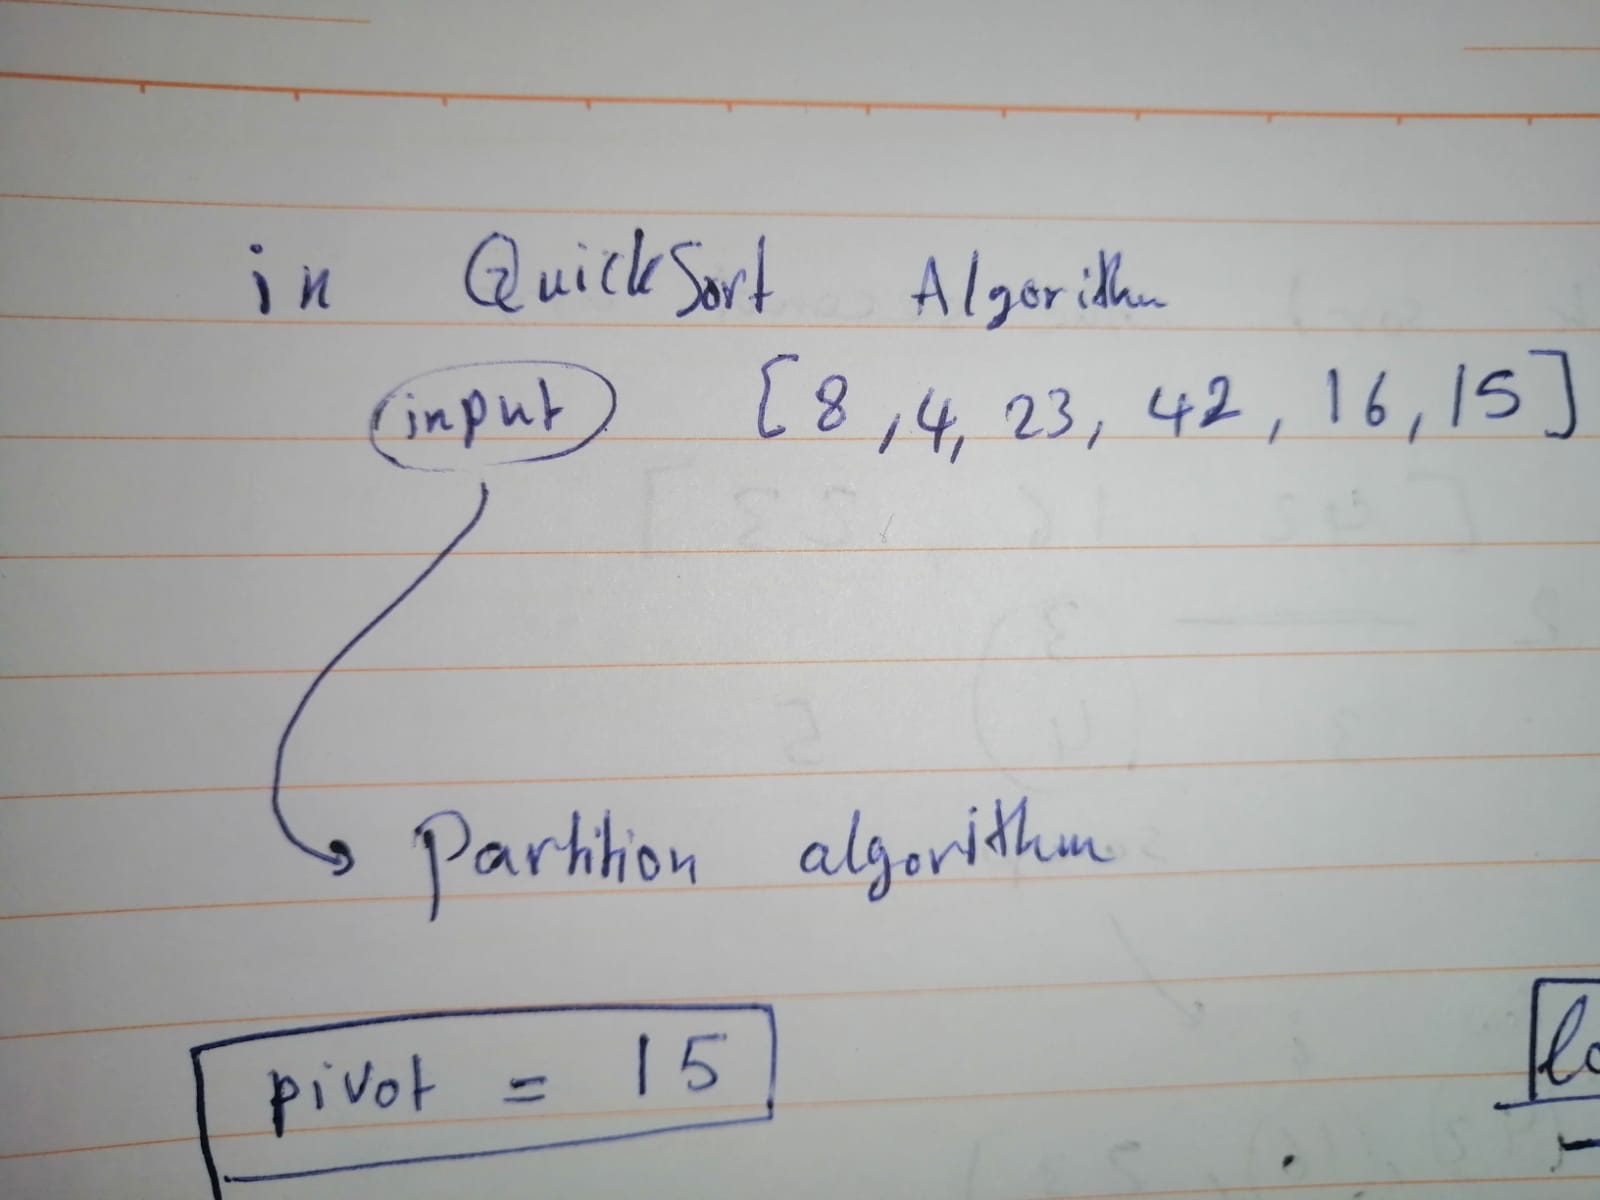 in QuickSort Algorithm
input [8, 4, 23, 42, 16, 15]
Partition algorithm
pivot = 15